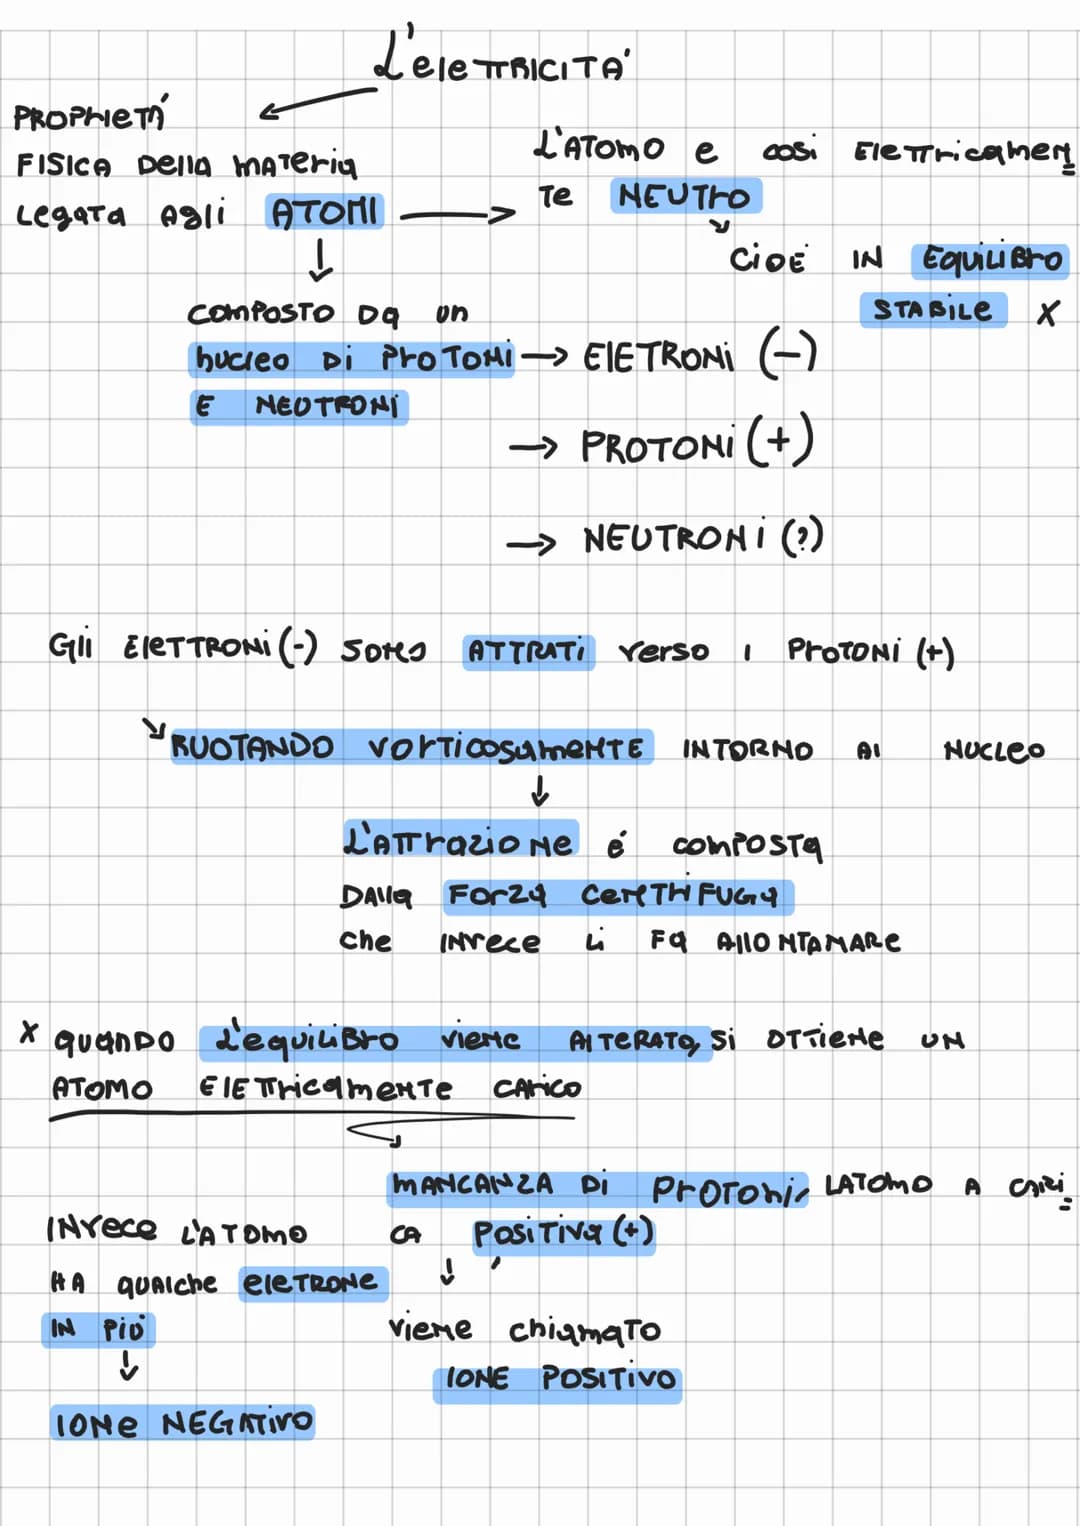 L'elettricità
Proprietà
fisica della materia
legata agli ATOMI
L'atomo e cosi elettricamen
te NEUTRO
cioè in equilibro
stabile X
composto da un
nucleo di protoni → Eletroni (-)
e neutroni
→ PROTONi (+)
→ NEUTRONi (?)
Gli elettroni (-) sono ATTRATi verso i protoni (+)
RUOTANDO vorticosamente intorno al nucleo
L'attrazione é composta
dalla Forza centrifuga
che invece li fa allontanare
X quando l'equilibro viene alterato, si ottiene un
atomo elettricamente carico
mancanza di protoni, latomo a cari
ca positiva (+)
viene chiamato
IONE POSITIVO
Invece l'atomo
ha qualche eletrone
in più
IONE NEGATIVO